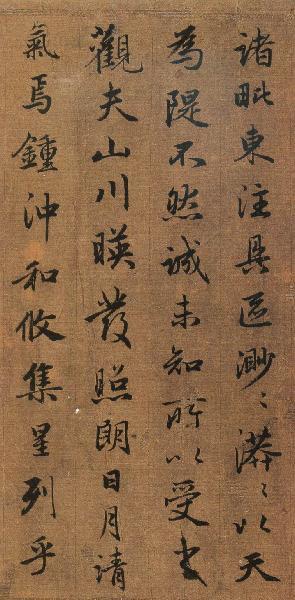 諸毗東注具區渺〻漭〻以天
為隄不然誠未知所以受之
觀夫山川映發照朗日月清
氣焉鍾沖和攸集星列乎